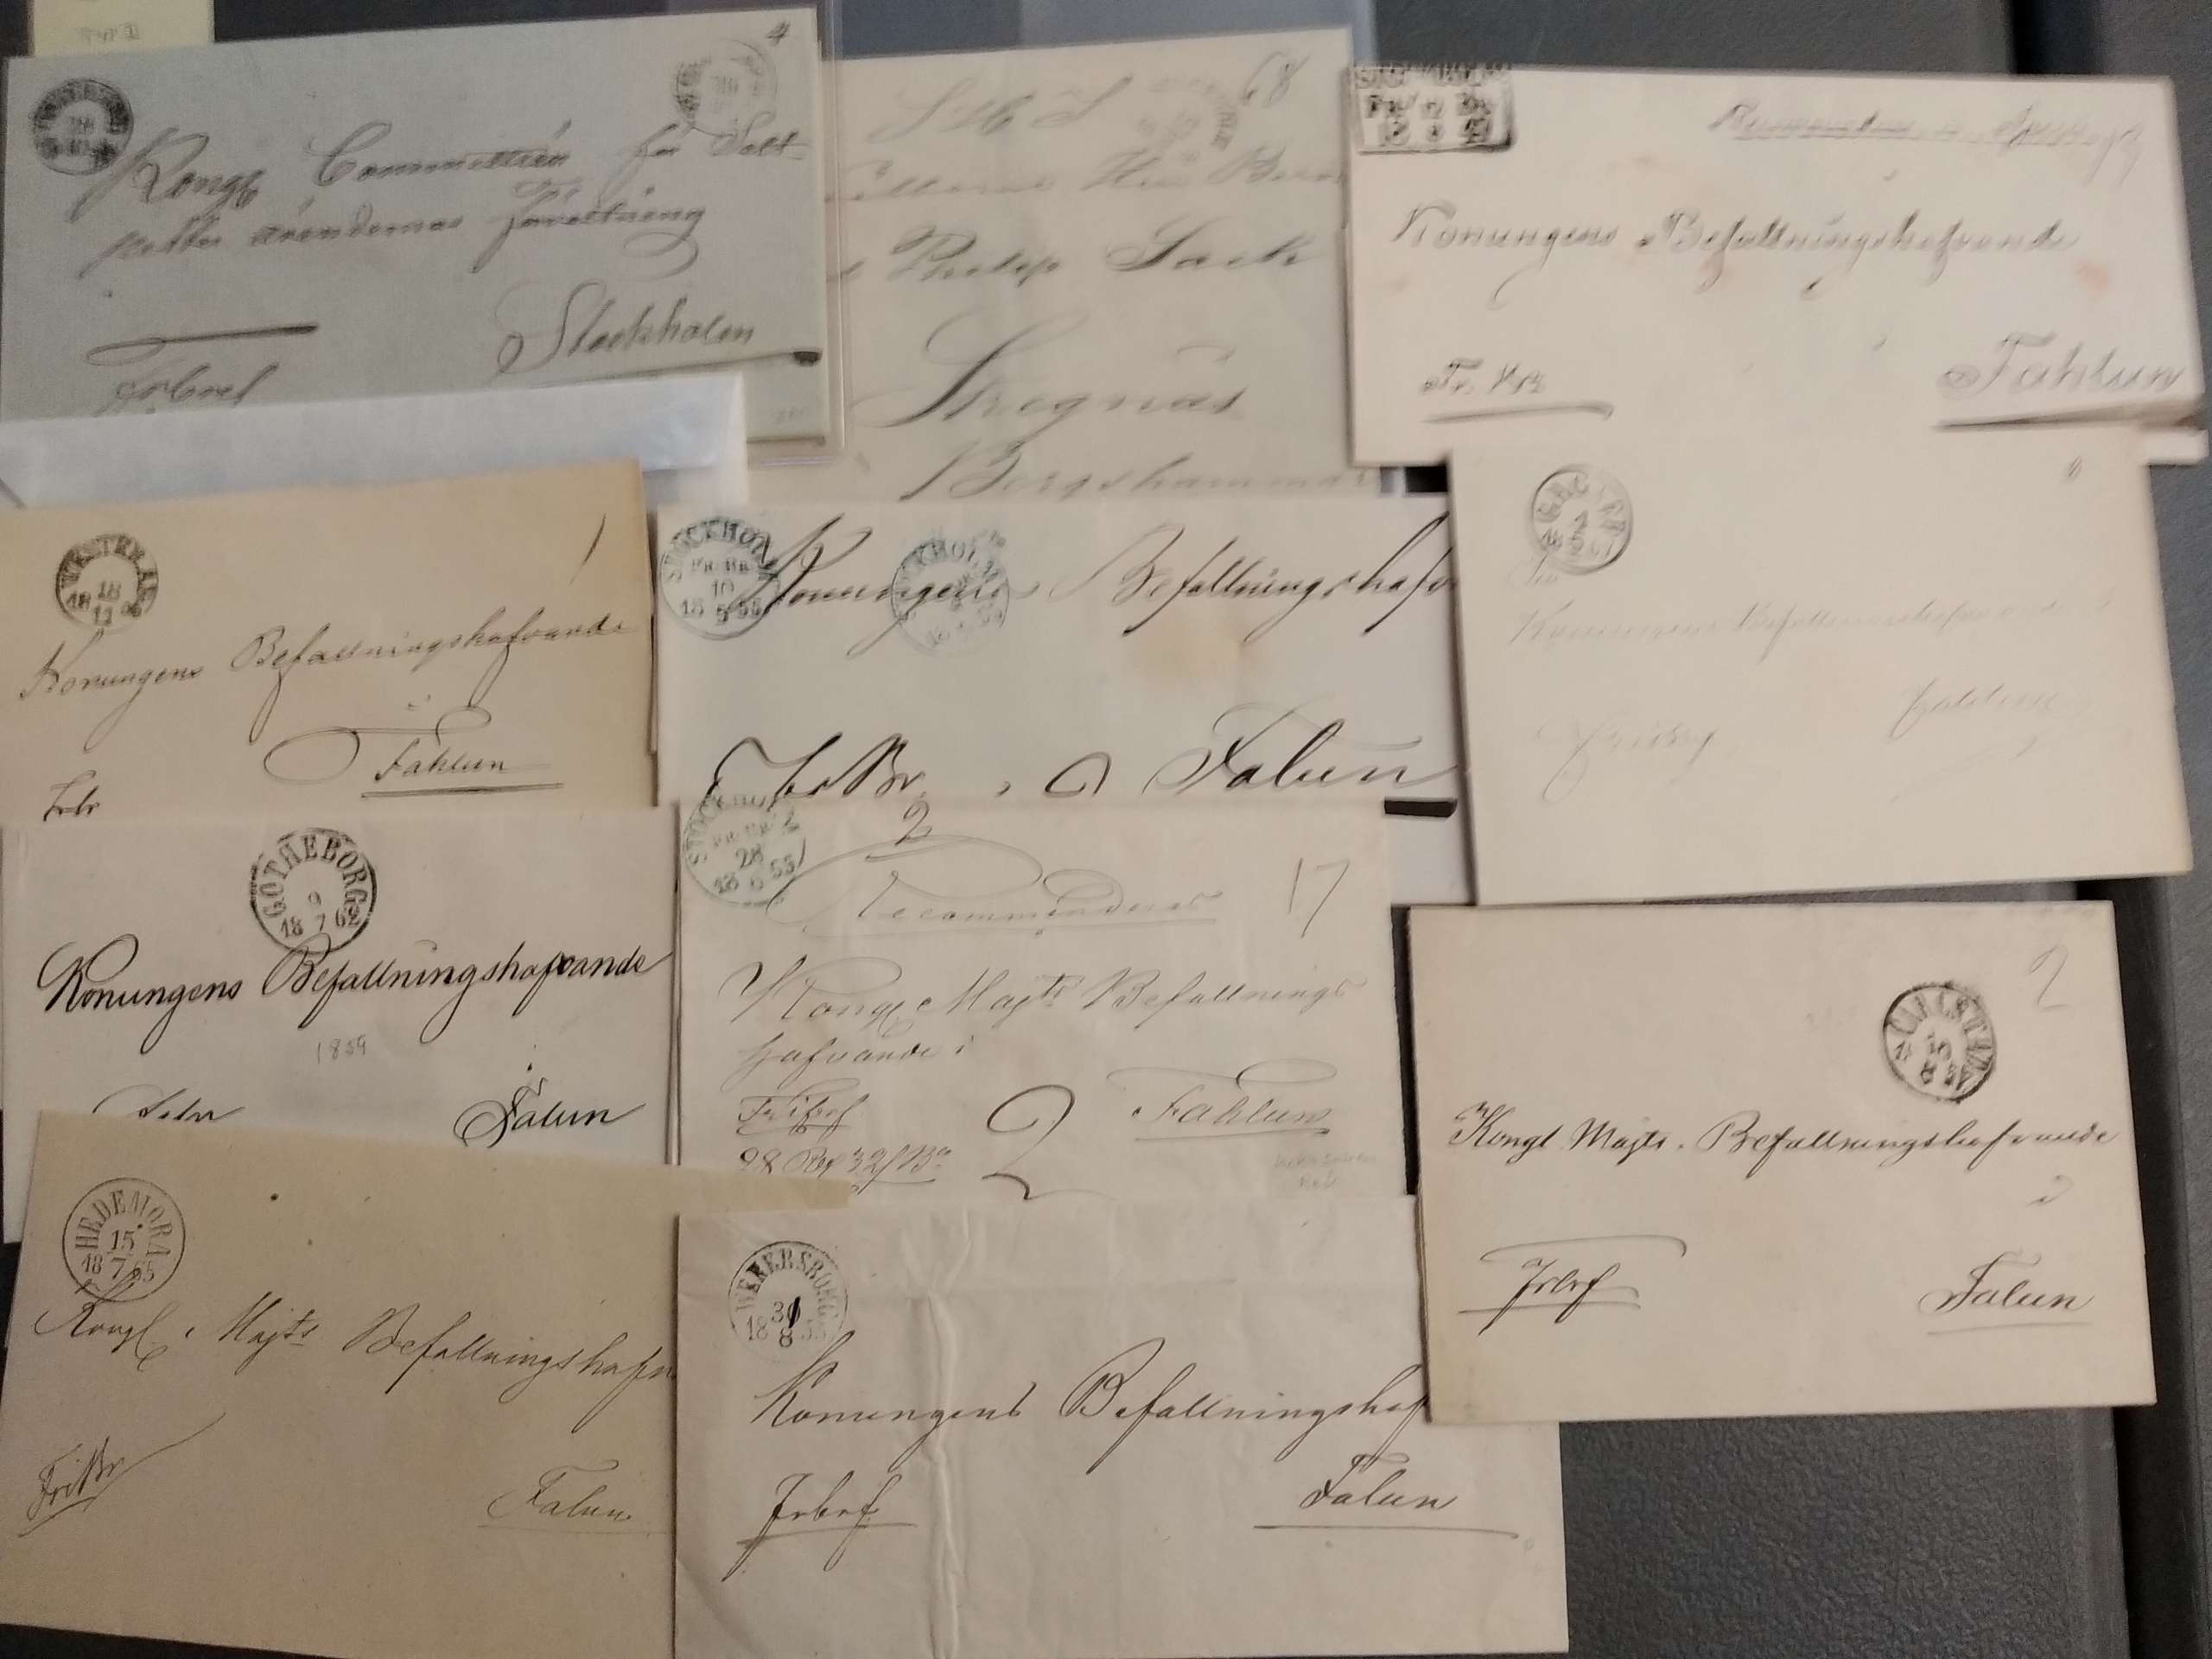 4
Kongl Committeen för Salt-
petter ärendernas förvaltning
Stockholm
frbref
68
Philip Sack
Stregnäs
Bergshammar
Fr. Br.
12
18 8
Konungens Befallningshafvande
Fahlun
WESTERÅS
18
18 12
Konungens Befallningshafvande
i
Fahlun
Frbr
STOCKHOLM
FR: BR:
10
18 5 55
Konungens Befallningshafv
FrBr
Falun
Konungens Befallningshafvande
Fahlun
GÖTHEBORG
9
18 7 62
Konungens Befallningshafvande
1859
i
Falun
STOCKHOLM
28
18 6 55
2
Recommenderas
17
Kongl Majts Befallnings
hafvande i
Fribref
Fahlun
2
CARLSTAD
10
8
2
Kongl. Majts. Befallningshafvande
i
Frbrf
Falun
HEDEMORA
15
18 7 65
Kongl. Majts Befallningshafv
FriBr
Falun
WENERSBORG
30
18 8 55
Konungens Befallningshaf
Frbrf
Falun